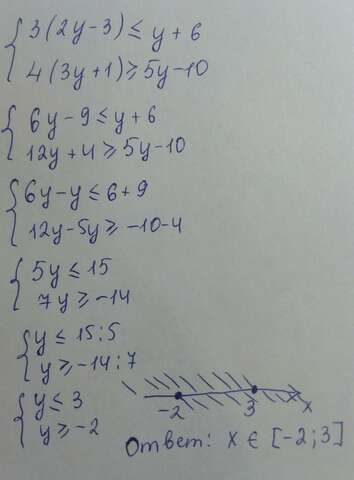 3(2y-3) ≤ y+6
4(3y+1) ≥ 5y-10
6y-9 ≤ y+6
12y+4 ≥ 5y-10
6y-y ≤ 6+9
12y-5y ≥ -10-4
5y ≤ 15
7y ≥ -14
y ≤ 15:5
y ≥ -14:7
y ≤ 3
y ≥ -2
-2 3 x
Ответ: x ∈ [-2;3]